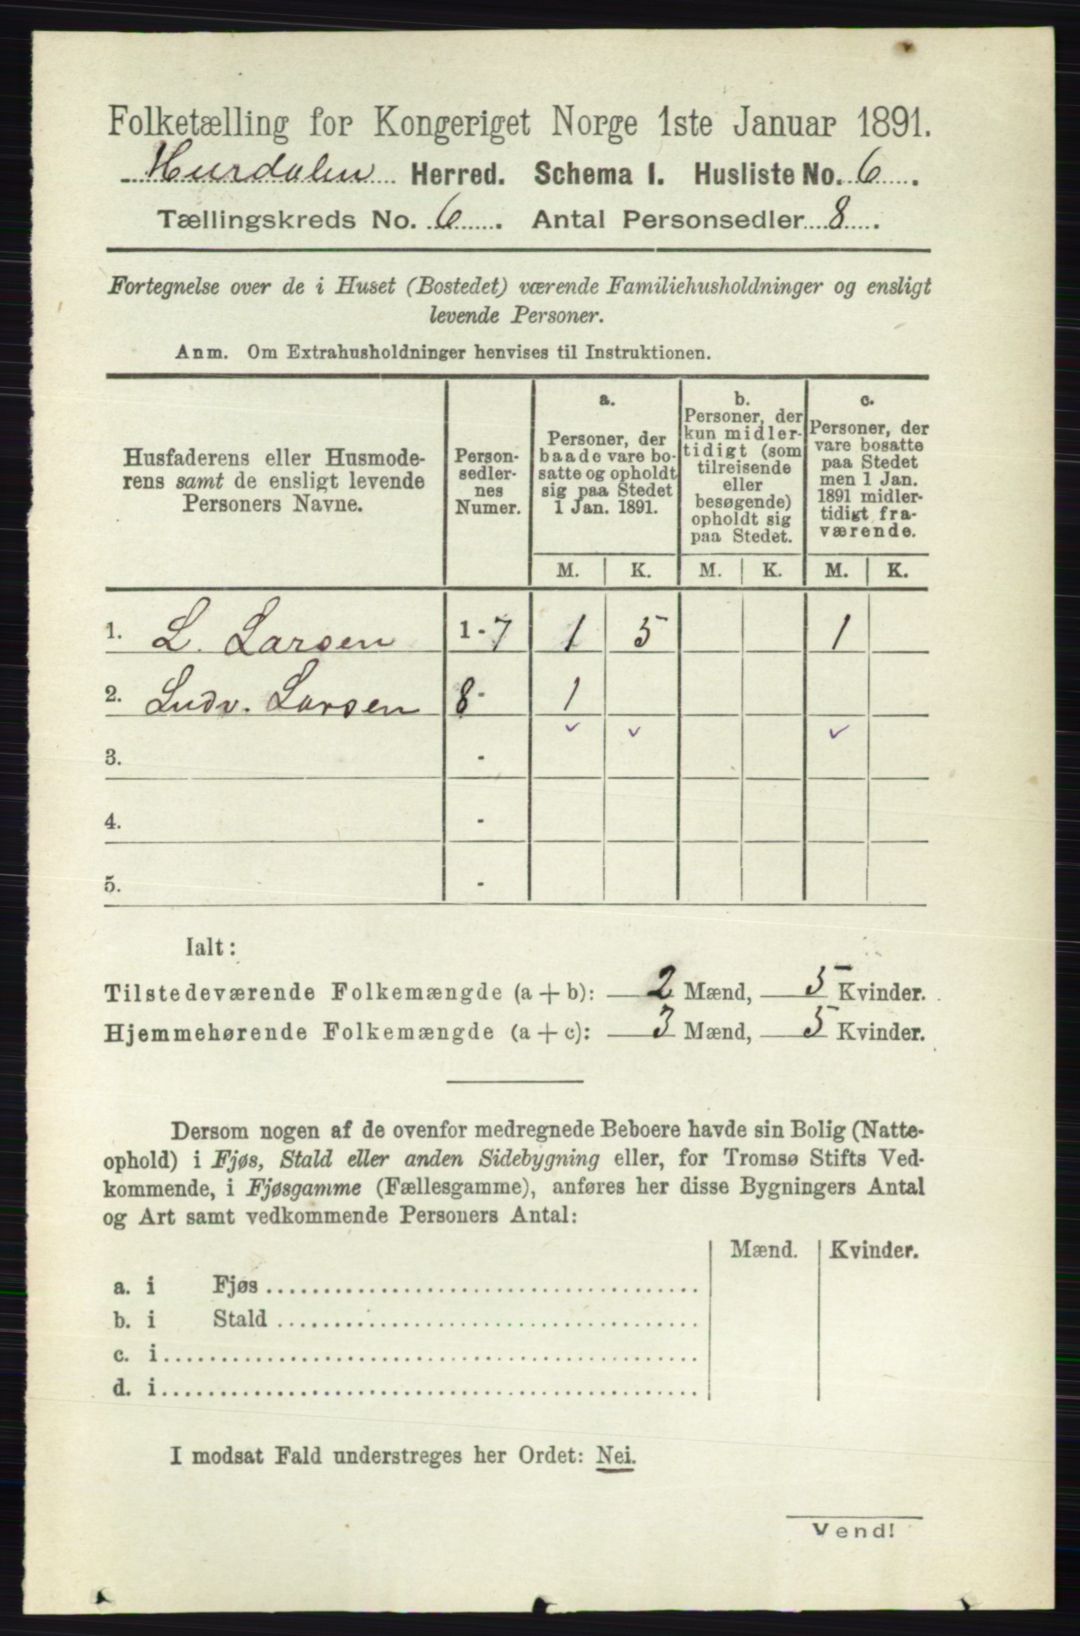 Folketælling for Kongeriget Norge 1ste Januar 1891.
Hurdalen Herred. Schema I. Husliste No. 6.
Tællingskreds No. 6. Antal Personsedler 8.
Fortegnelse over de i Huset (Bostedet) værende Familiehusholdninger og ensligt
levende Personer.
Anm. Om Extrahusholdninger henvises til Instruktionen.
Husfaderens eller Husmode-
rens samt de ensligt levende
Personers Navne.
Person-
sedler-
nes
Numer.
a.
Personer, der
baade vare bo-
satte og opholdt
sig paa Stedet
1 Jan. 1891.
b.
Personer, der
kun midler-
tidigt (som
tilreisende
eller
besøgende)
opholdt sig
paa Stedet.
c.
Personer, der
vare bosatte
paa Stedet
men 1 Jan.
1891 midler-
tidigt fra-
værende.
M. K. M. K. M. K.
1. L. Larsen 1-7 1 5 1
2. Ludv. Larsen 8- 1
3. -
4. -
5. -
Ialt:
Tilstedeværende Folkemængde (a+b): 2 Mænd, 5 Kvinder.
Hjemmehørende Folkemængde (a+c): 3 Mænd, 5 Kvinder.
Dersom nogen af de ovenfor medregnede Beboere havde sin Bolig (Natte-
ophold) i Fjøs, Stald eller anden Sidebygning eller, for Tromsø Stifts Ved-
kommende, i Fjøsgamme (Fællesgamme), anføres her disse Bygningers Antal
og Art samt vedkommende Personers Antal:
Mænd. Kvinder.
a. i Fjøs
b. i Stald
c. i
d. i
I modsat Fald understreges her Ordet: Nei.
Vend!